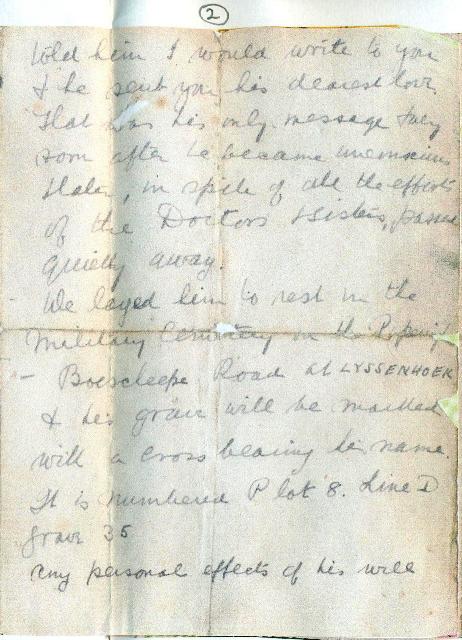 2
told him I would write to you
& he sent you his dearest love.
That was his only message Very
soon after he became unconscious
& later, in spite of all the efforts
of the Doctors & Sisters, passed
quietly away.
We layed him to rest in the
Military Cemetery on the
- Boescheepe Road at LYSSENHOEK
& his grave will be marked
with a cross bearing his name.
It is numbered Plot 8. Line D
Grave 35
Any personal effects of his will